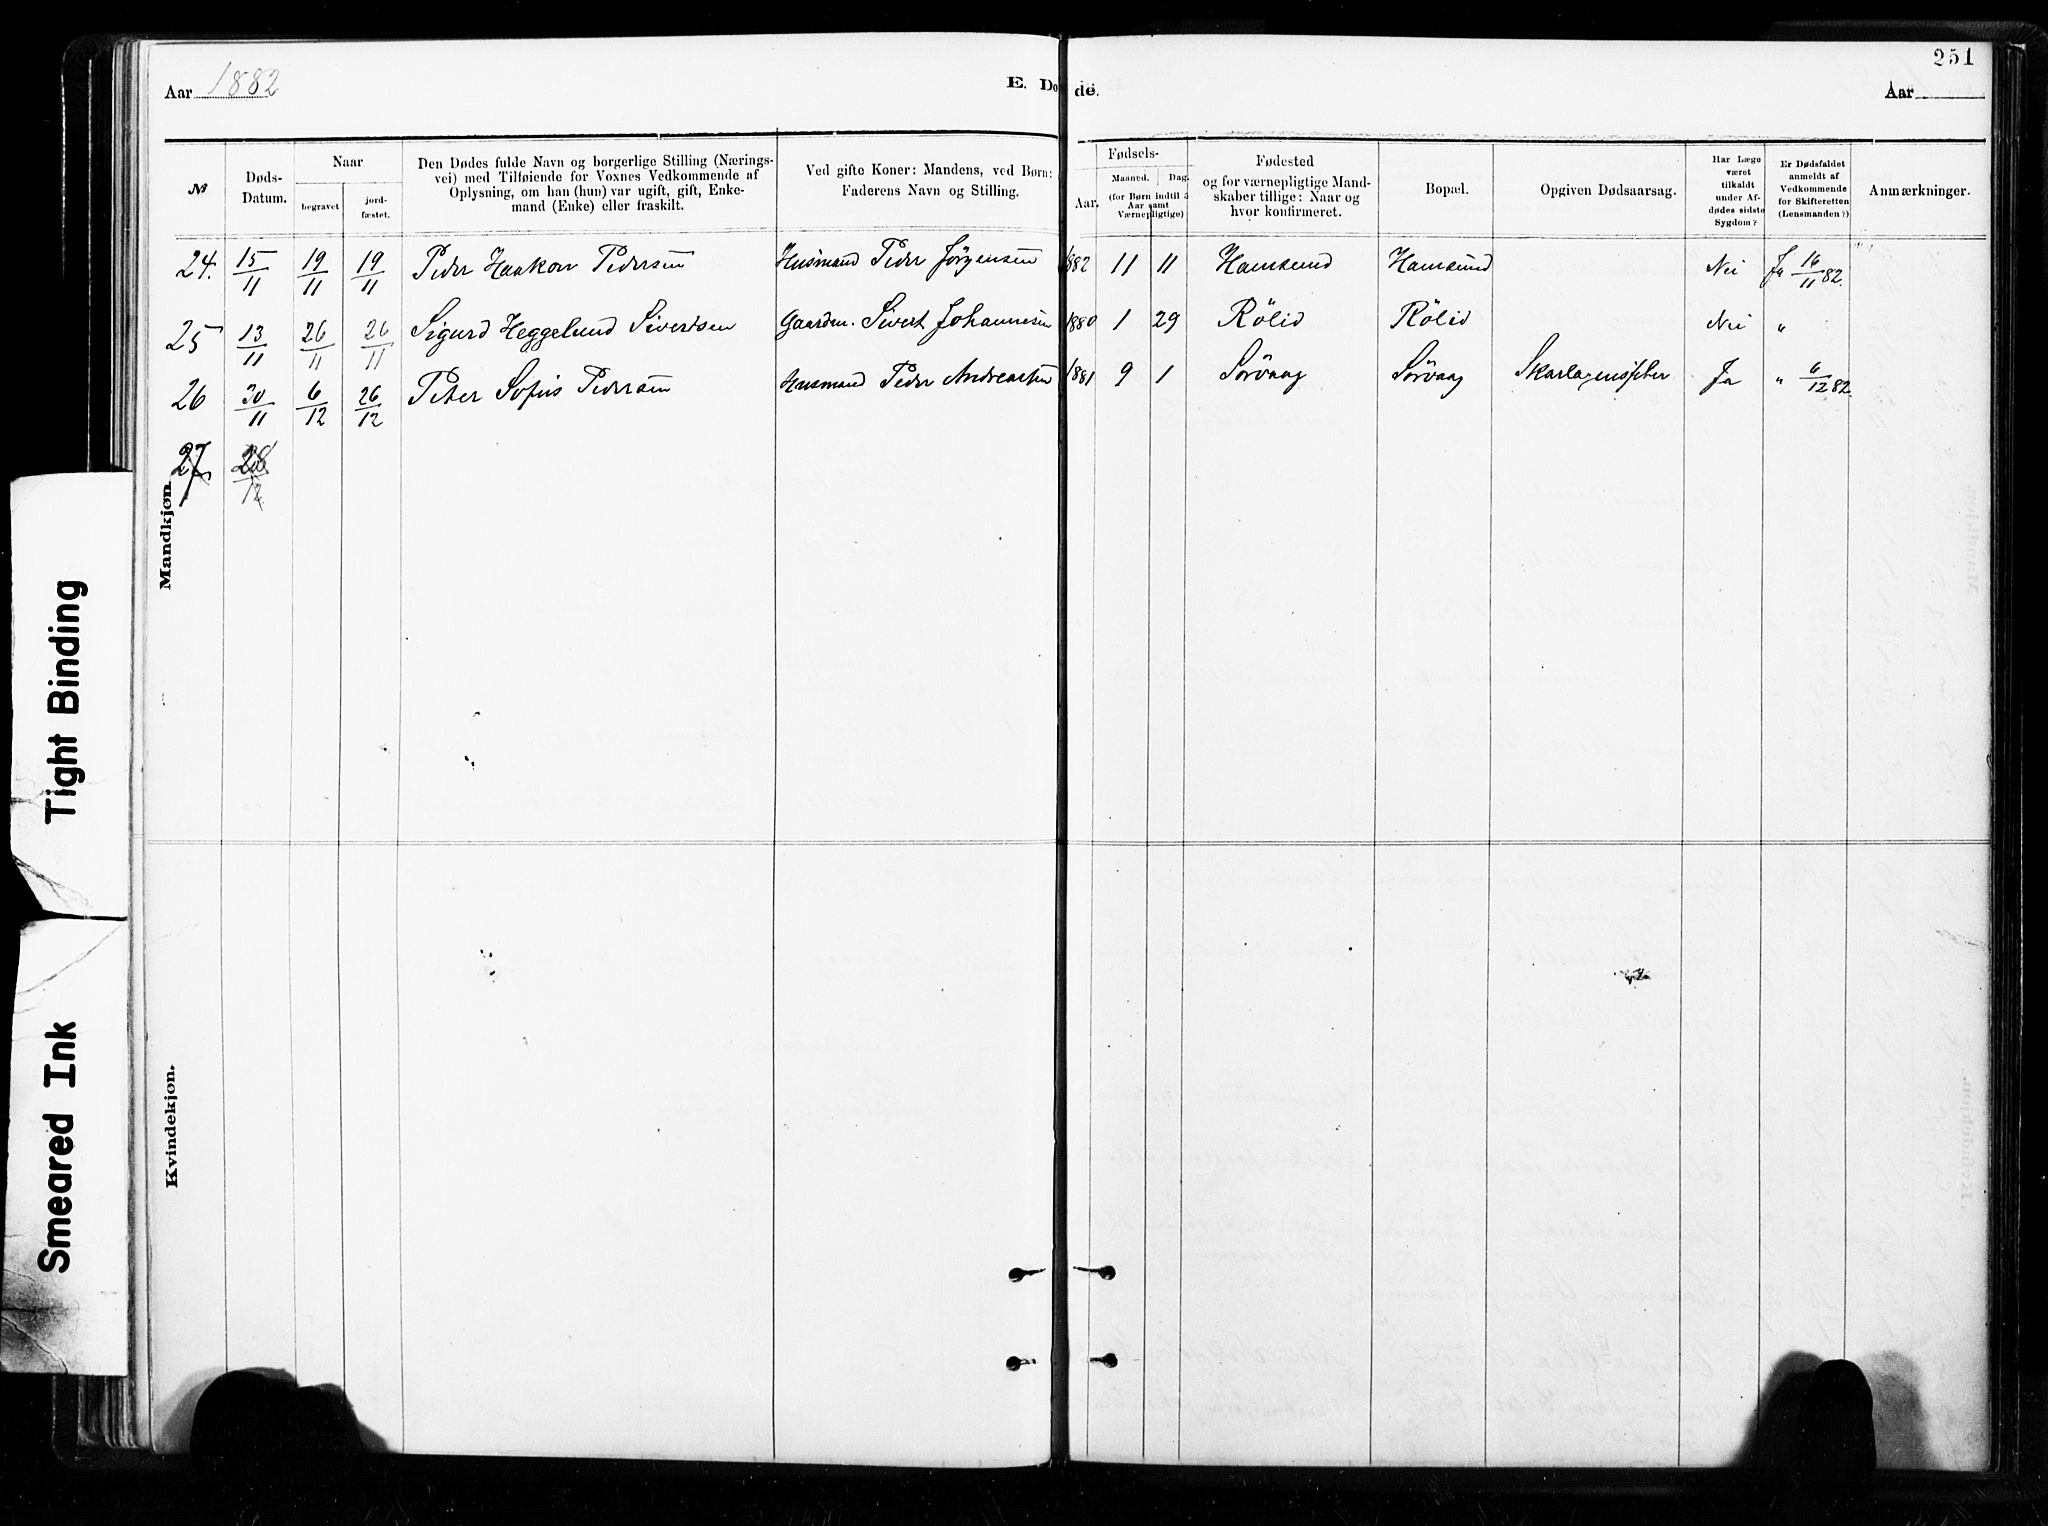 251
Aar 1882
E. Dø de.
Aar
№
Døds-Datum.
Naar
begravet
jord-fæstet.
Den Dødes fulde Navn og borgerlige Stilling (Nærings-
vei) med Tilføiende for Voxnes Vedkommende af
Oplysning, om han (hun) var ugift, gift, Enke-
mand (Enke) eller fraskilt.
Ved gifte Koner: Mandens, ved Børn:
Faderens Navn og Stilling.
Fødsels-
Aar.
Maaned.
Dag.
(for Børn indtil 5
Aar samt
Værnepligtige)
Fødested
og for værnepligtige Mand-
skaber tillige: Naar og
hvor konfirmeret.
Bopæl.
Opgiven Dødsaarsag.
Har Læge
været
tilkaldt
under Af-
dødes sidste
Sygdom?
Er Dødsfaldet
anmeldt af
Vedkommende
for Skifteretten
(Lensmanden?)
Anmærkninger.
24. 15/11 19/11 19/11 Peder Haakon Pedersen Husmand Peder Jörgensen 1882 11 11 Hamsund Hamsund Nei Ja 16/11 82.
25 13/11 26/11 26/11 Sigurd Heggelund Sivertsen Gaardm. Sivert Johannesen 1880 1 29 Rölid Rölid Nei "
26 30/11 6/12 26/12 Peter Sofus Pedersen Husmand Peder Andreassen 1881 9 1 Sörvaag Sörvaag Skarlagensfeber Ja " 6/12 82.
27. 28/12
Mandkjøn.
Kvindekjøn.
Tight Binding
Smeared Ink